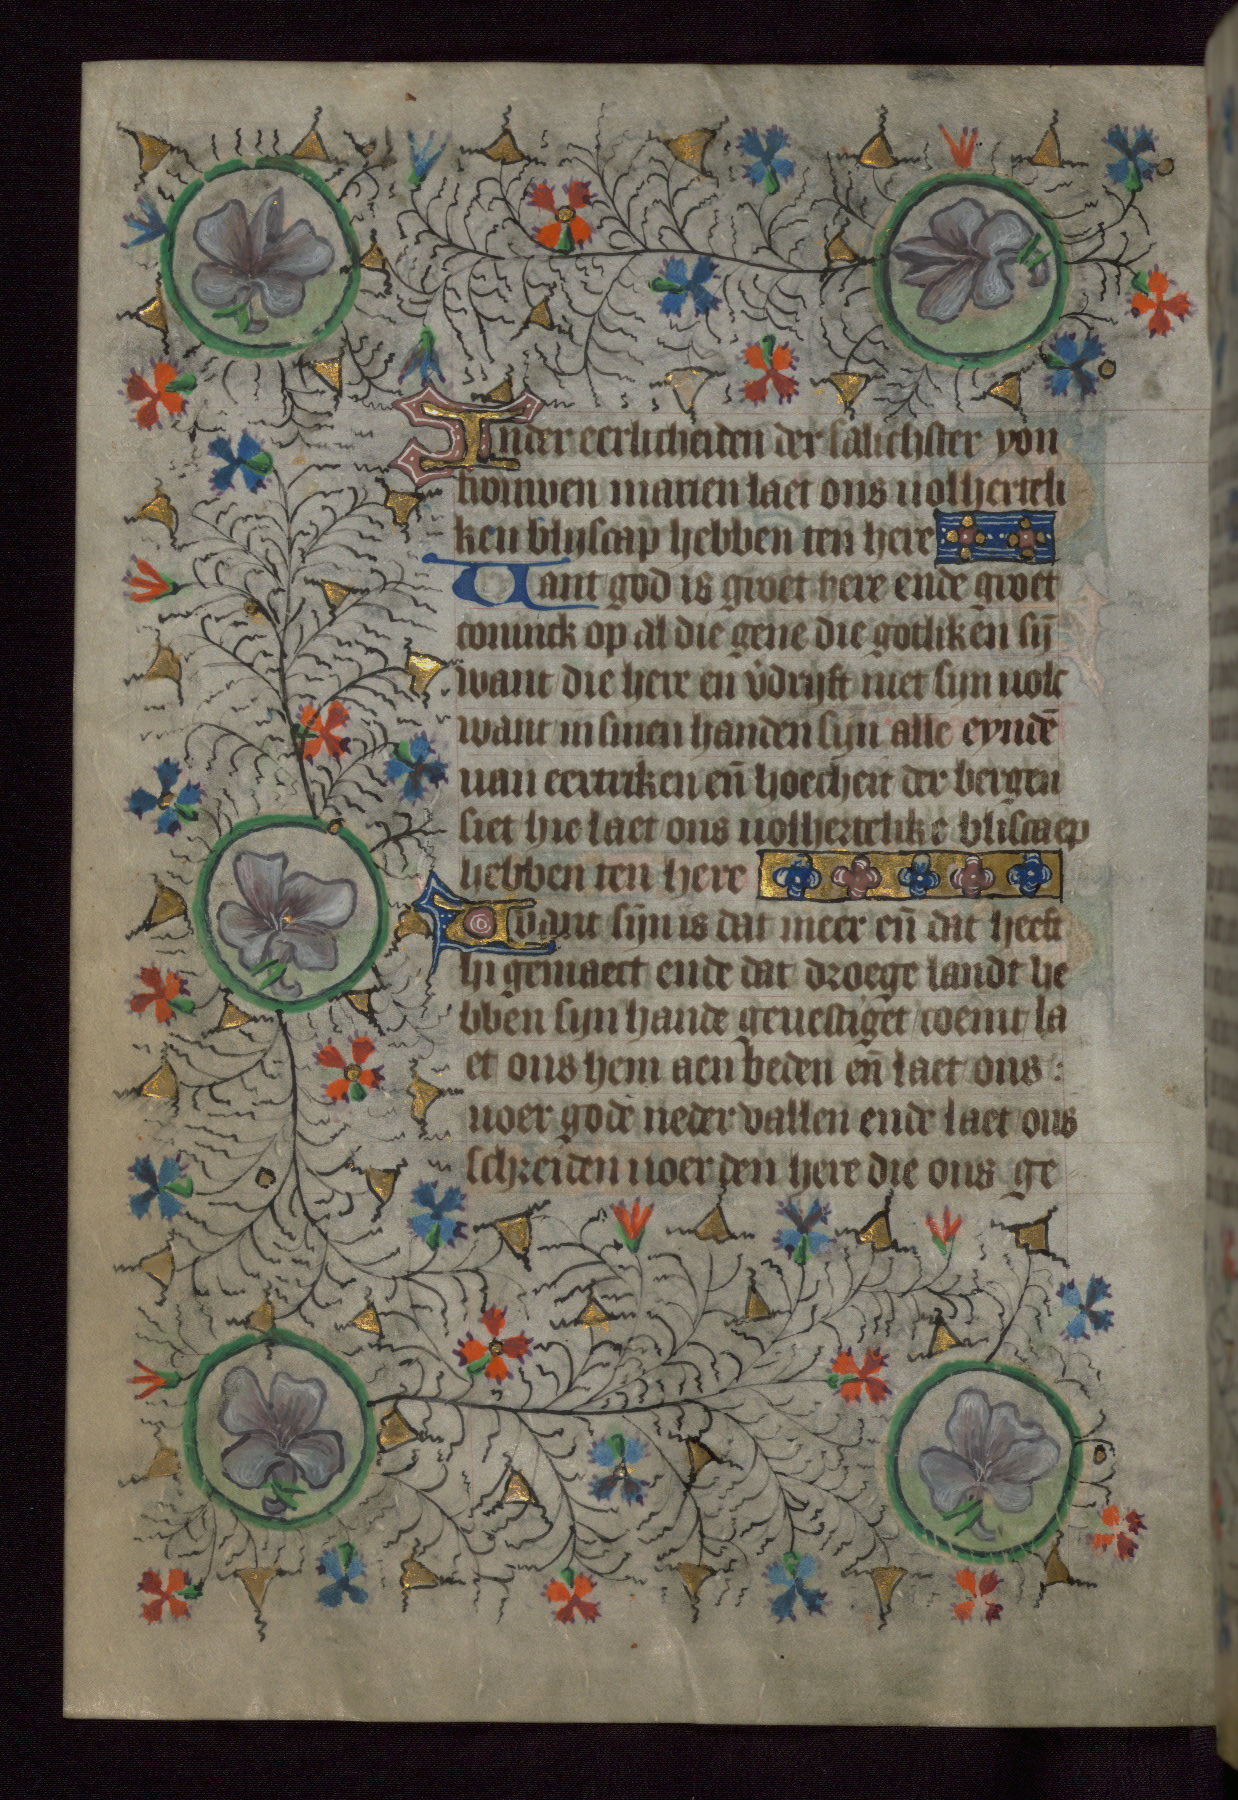 In der eerlicheiden der salichster von
frouwen marien laet ons uolherteli
ken blijscap hebben ten here
Want god is groet here ende groet
coninck op al die gene die gotliken sij̄
want die here en v̄drijft niet sijn uolc
want in sinen handen sijn alle eyndē
uan eertriken en̄ hoecheit der bergen
siet hie laet ons uolhertelike bliscaep
hebben ten here
want sijn is dat meer en̄ dat heeft
hi gemaect ende dat droege landt he
bben sijn hande geuestiget coemt la
et ons hem aen beden en̄ laet ons :
uoer godē neder vallen ende laet ons
schreiden uoer den here die ons ge